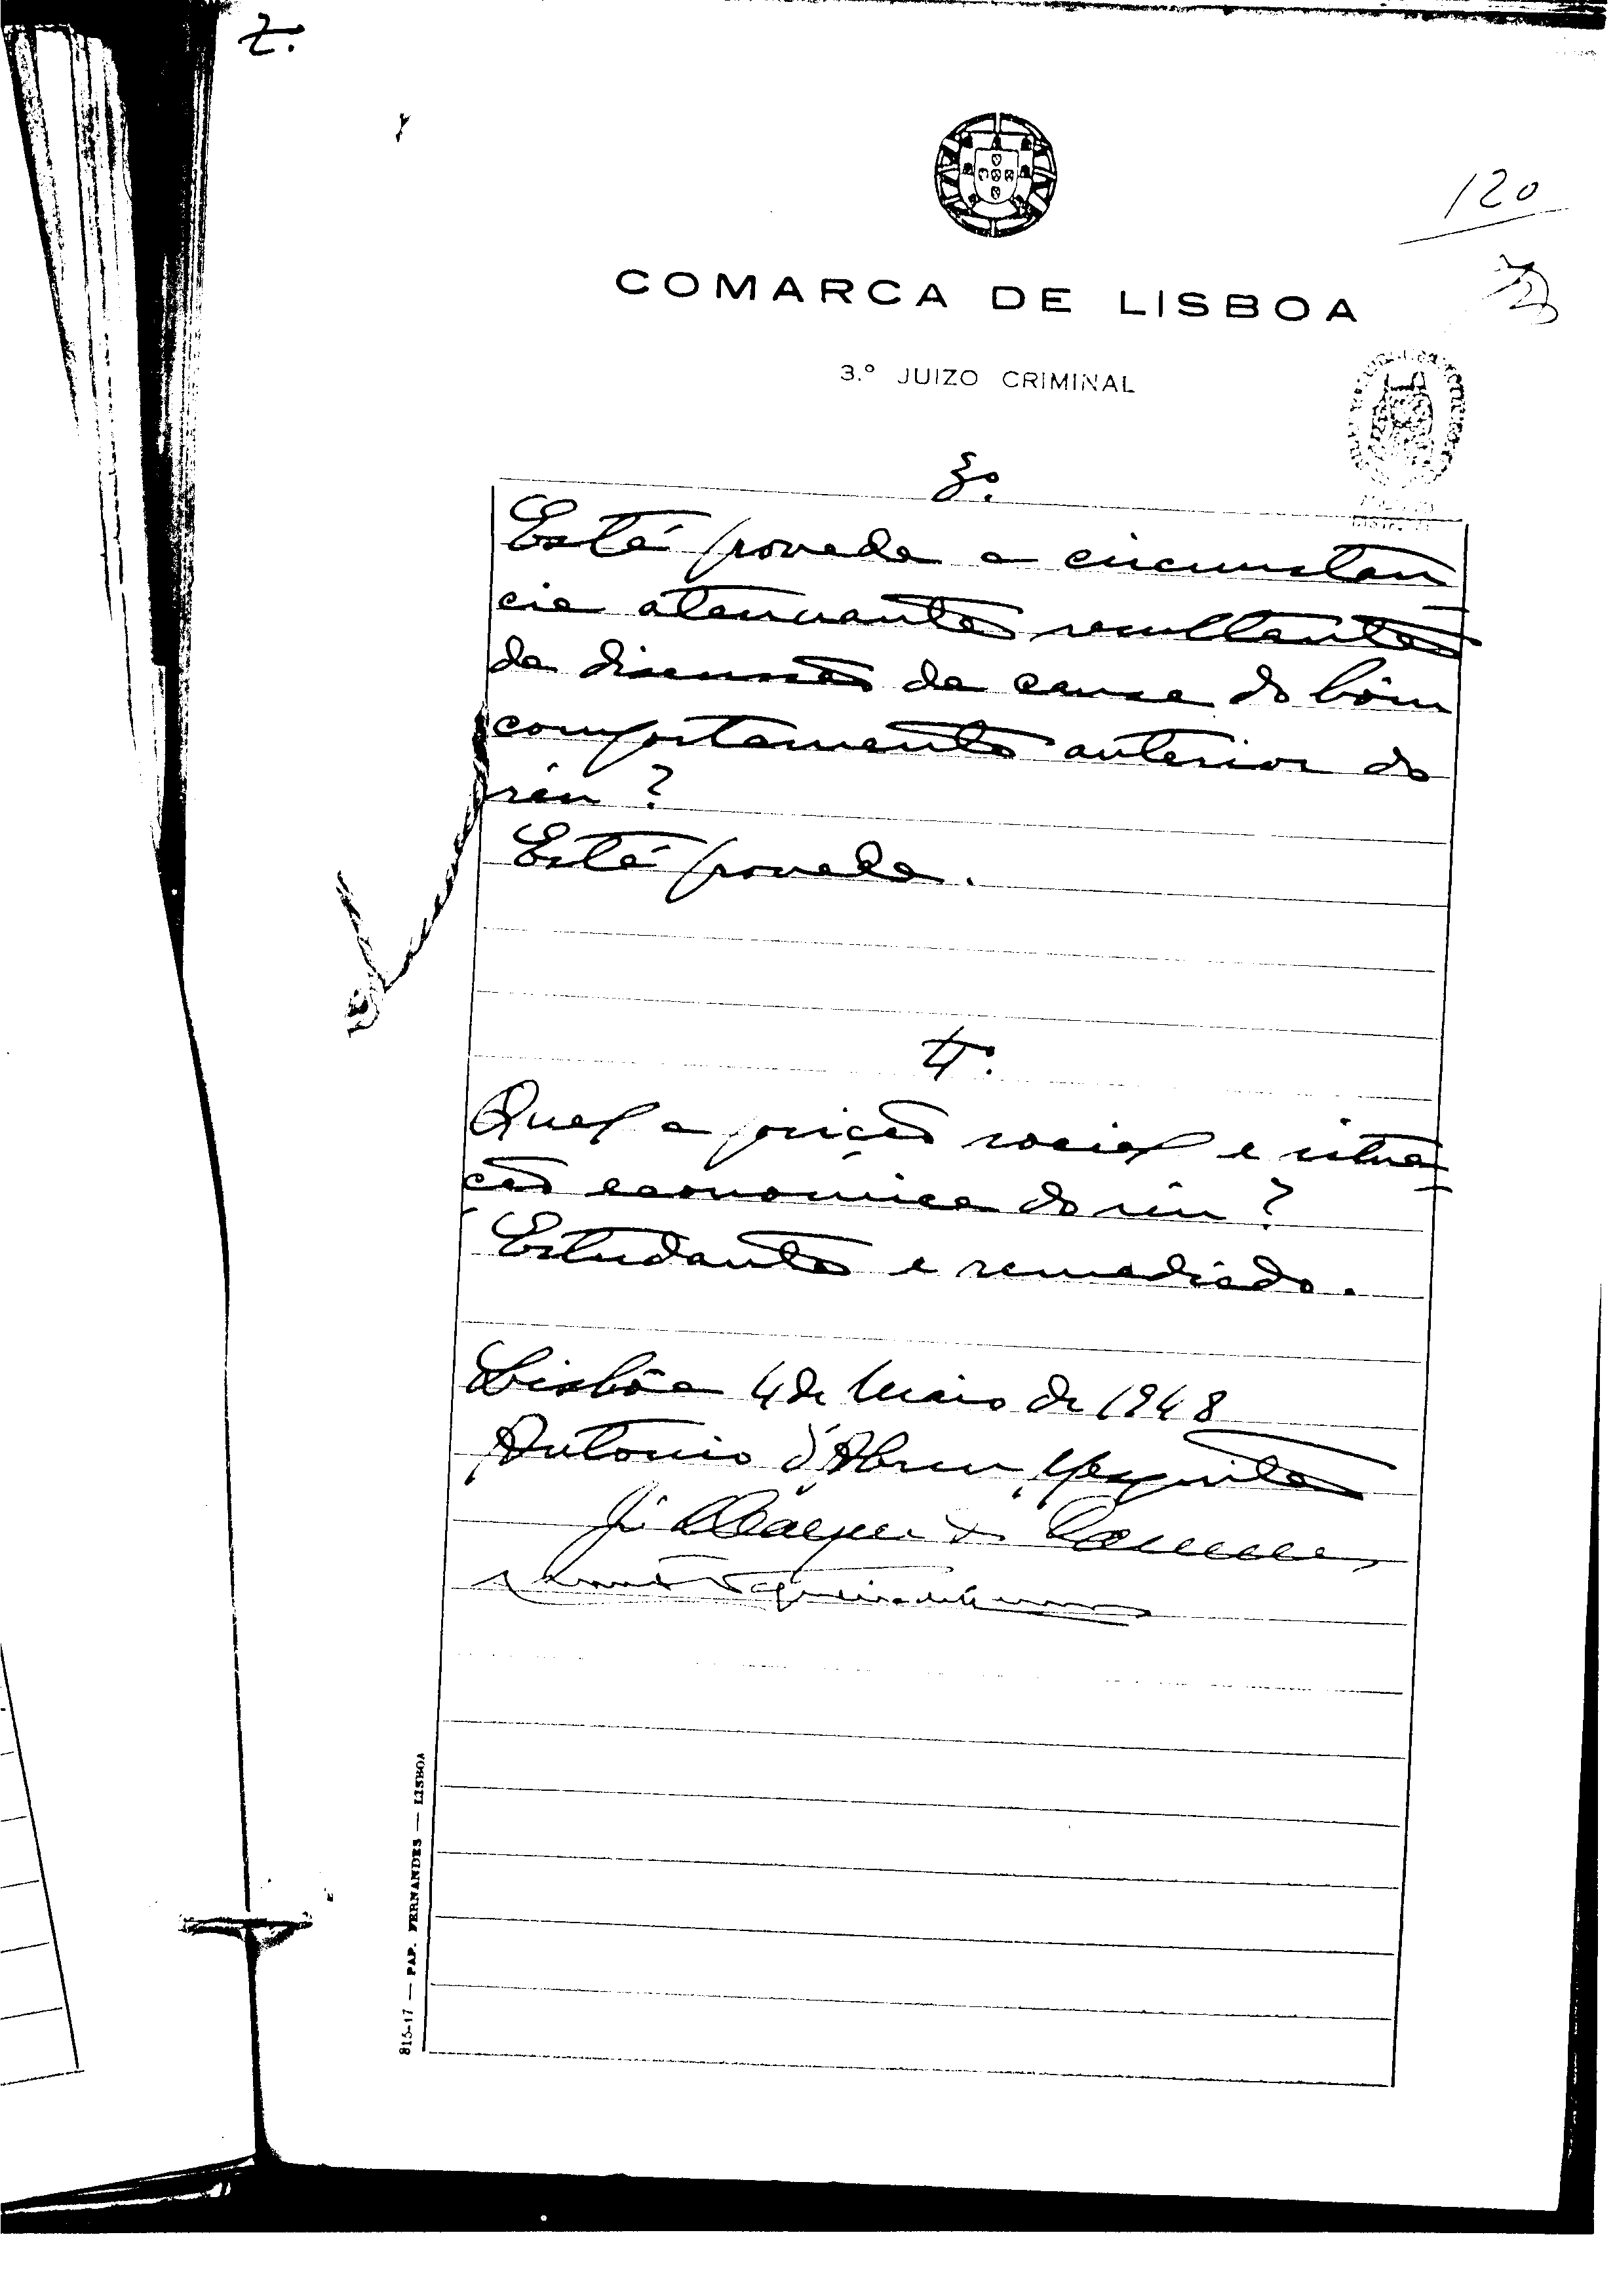 2.
120
COMARCA DE LISBOA
3.º JUIZO CRIMINAL
3º.
Está provada a circunstan
cia atenuante resultante
da discussão da causa do bôm
comportamento anterior do
réu ?
Está provada.
4º.
Qual a posição social e situa-
ção económica do réu ?
Estudante e remediado.
Lisbôa 4 de Maio de 1948
Antonio d'Abreu Mesquita
815-17 — PAP. FERNANDES — LISBOA